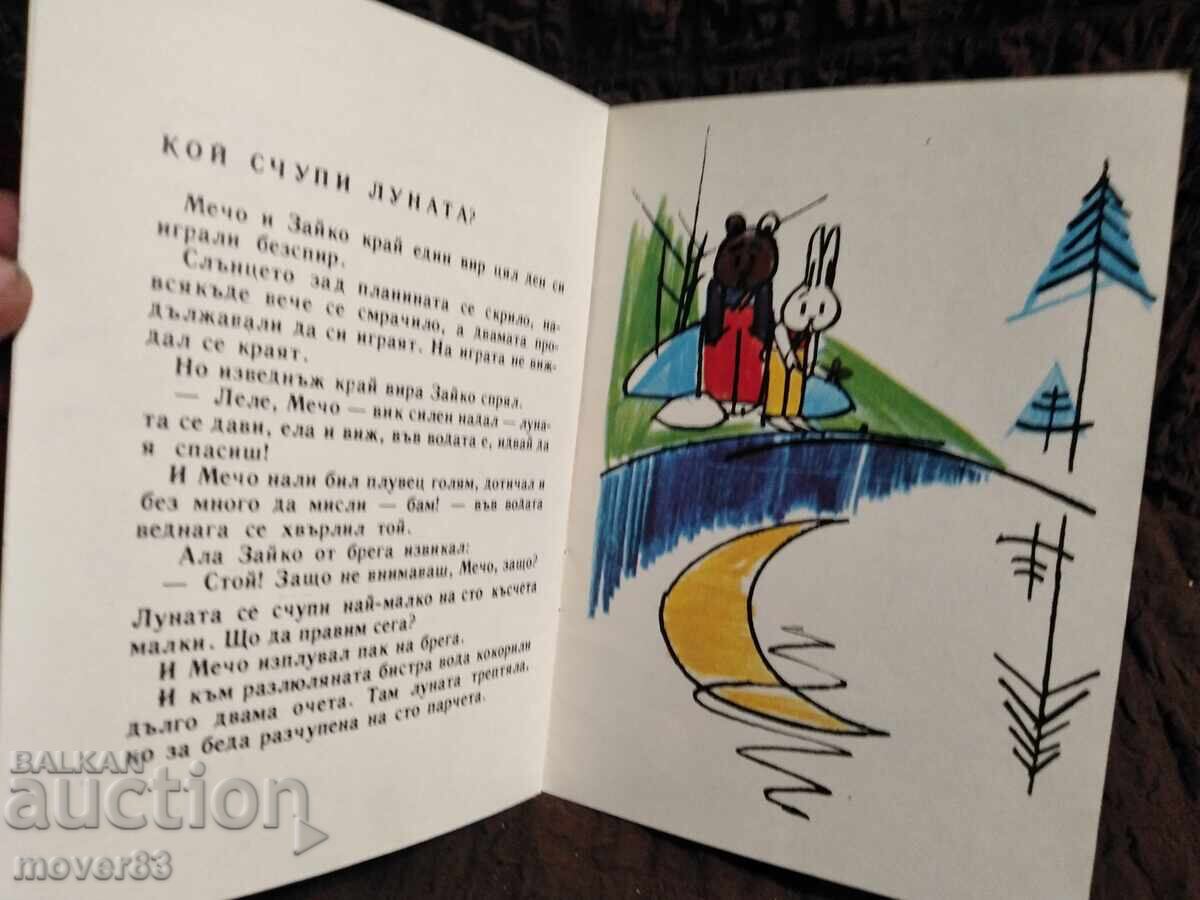 КОЙ СЧУПИ ЛУНАТА?
Мечо и Зайко край един вир цял ден си
играли безспир.
Слънцето зад планината се скрило, на-
всякъде вече се смрачило, а двамата про-
дължавали да си играят. На играта не виж-
дал се краят.
Но изведнъж край вира Зайко спрял.
— Леле, Мечо — вик силен надал — луна-
та се дави, ела и виж, във водата е, идвай да
я спасиш!
И Мечо нали бил плувец голям, дотичал и
без много да мисли — бам! — във водата
веднага се хвърлил той.
Ала Зайко от брега извикал:
— Стой! Защо не внимаваш, Мечо, защо?
Луната се счупи най-малко на сто късчета
малки. Що да правим сега?
И Мечо изплувал пак на брега.
И към разлюляната бистра вода кокорили
дълго двама очета. Там луната трептяла,
ко за беда разчупена на сто парчета.
BALKAN
auction
mover83